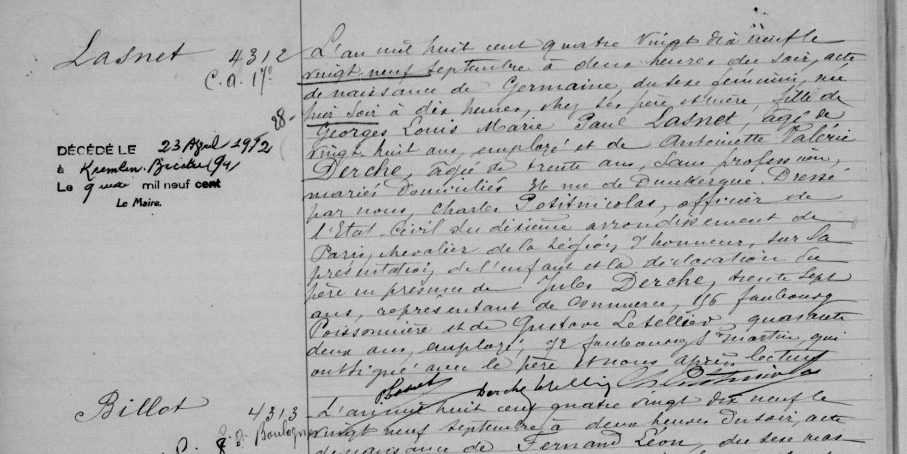 Lasnet 4312
C.a. 17e
28-
DÉCÉDÉ LE 23 Avril 1972
à Kremlin-Bicêtre (94)
Le 9 mai mil neuf cent
Le Maire.
L'an mil huit cent quatre vingt dix neuf le
vingt neuf septembre à deux heures du soir, acte
de naissance de Germaine, du sexe féminin, née
hier soir à dix heures, chez ses père et mère, fille de
Georges Louis Marie Paul Lasnet, agé de
vingt huit ans, employé et de Antoinette Valérie
Derche, agée de trente ans, sans profession,
mariés domiciliés 36 rue de Dunkerque. Dressé
par nous, Charles officier de
l'Etat Civil du dixième arrondissement de
Paris, chevalier de la Légion d'honneur, sur la
présentation de l'enfant et la déclaration du
père en présence de Jules Derche, trente sept
ans, représentant de commerce, 156 faubourg
Poissonnière et de Gustave Letellier, quarante
deux ans, employé, 72 faubourg St Martin, qui
ont signé avec le père et nous après lecture
Lasnet Derche Letellier
Billot 4313
C.a. Boulogne
L'an mil huit cent quatre vingt dix neuf le
vingt neuf septembre à deux heures du soir, acte
de naissance de Fernand Léon, du sexe mas